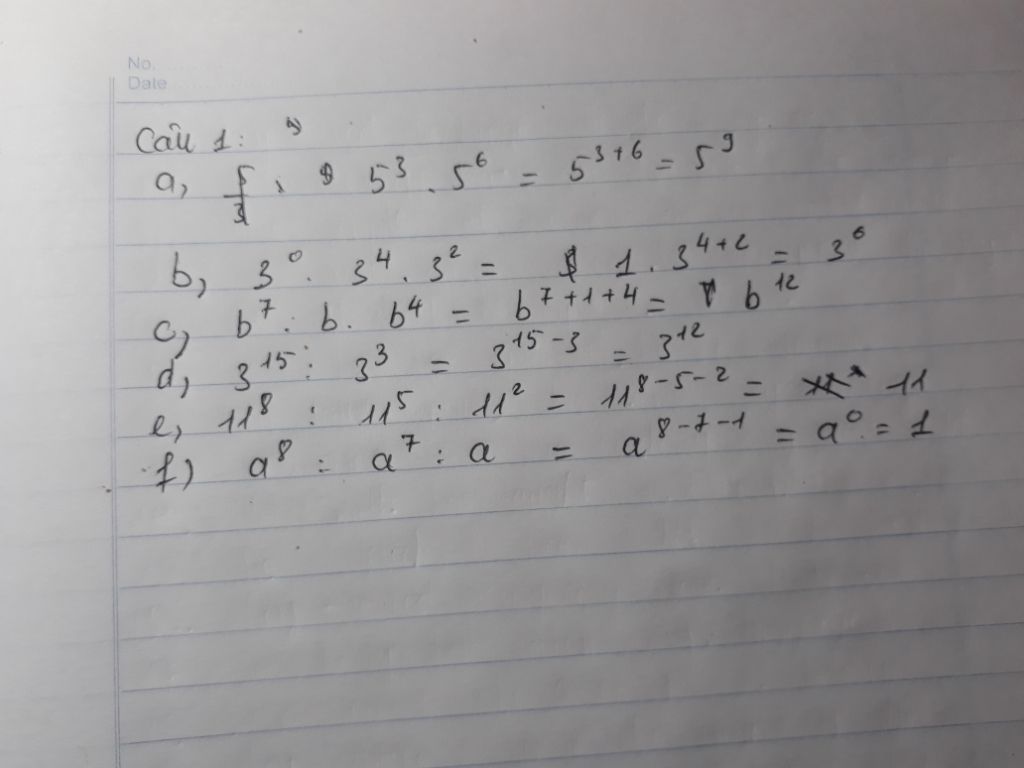 No.
Date
Câu 1:
a, 5³ . 5⁶ = 5³⁺⁶ = 5⁹
b, 3⁰ . 3⁴ . 3² = 1 . 3⁴⁺² = 3⁶
c, b⁷ : b . b⁴ = b⁷⁺¹⁺⁴ = b¹²
d, 3¹⁵ : 3³ = 3¹⁵⁻³ = 3¹²
e, 11⁸ : 11⁵ : 11² = 11⁸⁻⁵⁻² = 11
f) a⁸ : a⁷ : a = a⁸⁻⁷⁻¹ = a⁰ = 1